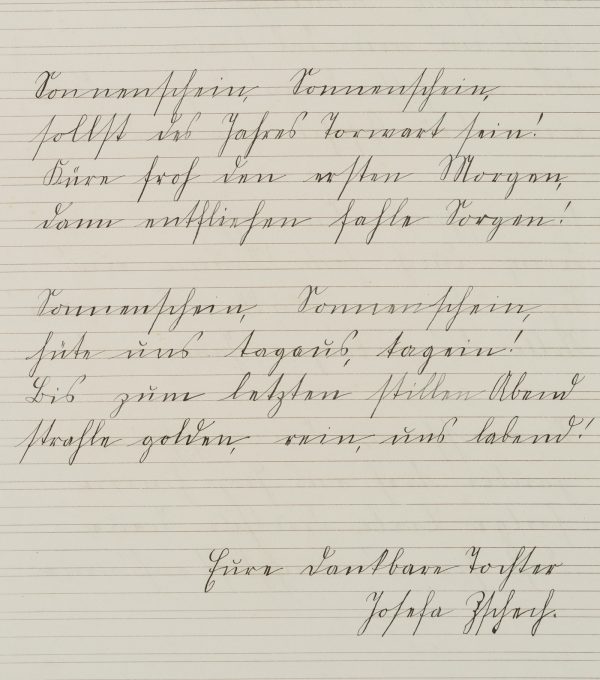 Sonnenschein, Sonnenschein,
sollst des Jahres Torwart sein!
Küre froh den ersten Morgen,
dann entfliehen fahle Sorgen!
Sonnenschein, Sonnenschein,
hüte uns tagaus, tagein!
Bis zum letzten stillen Abend
strahle golden, rein, uns labend!
Eure dankbare Tochter
Josefa Zschech.